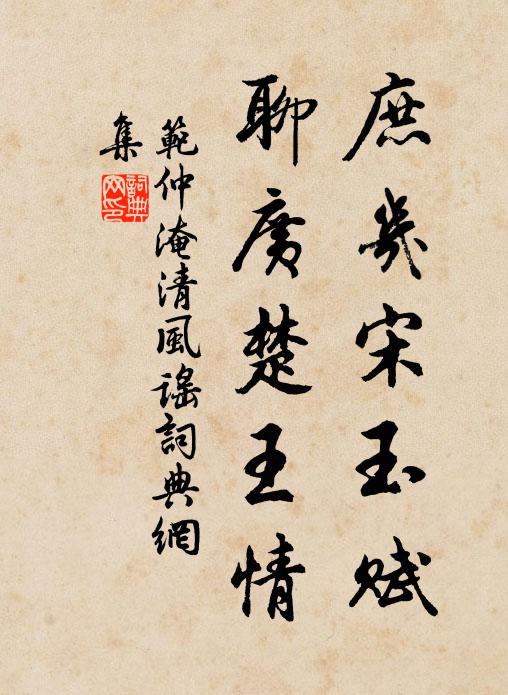 庶幾宋玉賦
聊廣楚王情
範仲淹清風謠詞典網
集
詞典網印